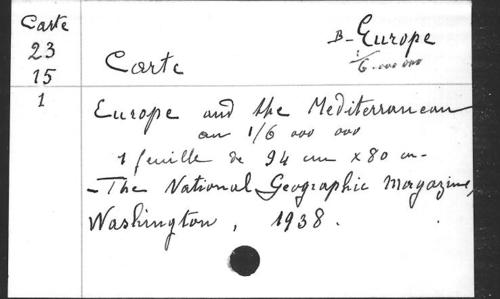 Carte
23
15
1
B-Europe
1/6.000 000
Carte
Europe and the Mediterranean
au 1/6 000 000
1 feuille de 94 cm x 80 cm -
- The National Geographic Magazine,
Washington, 1938.